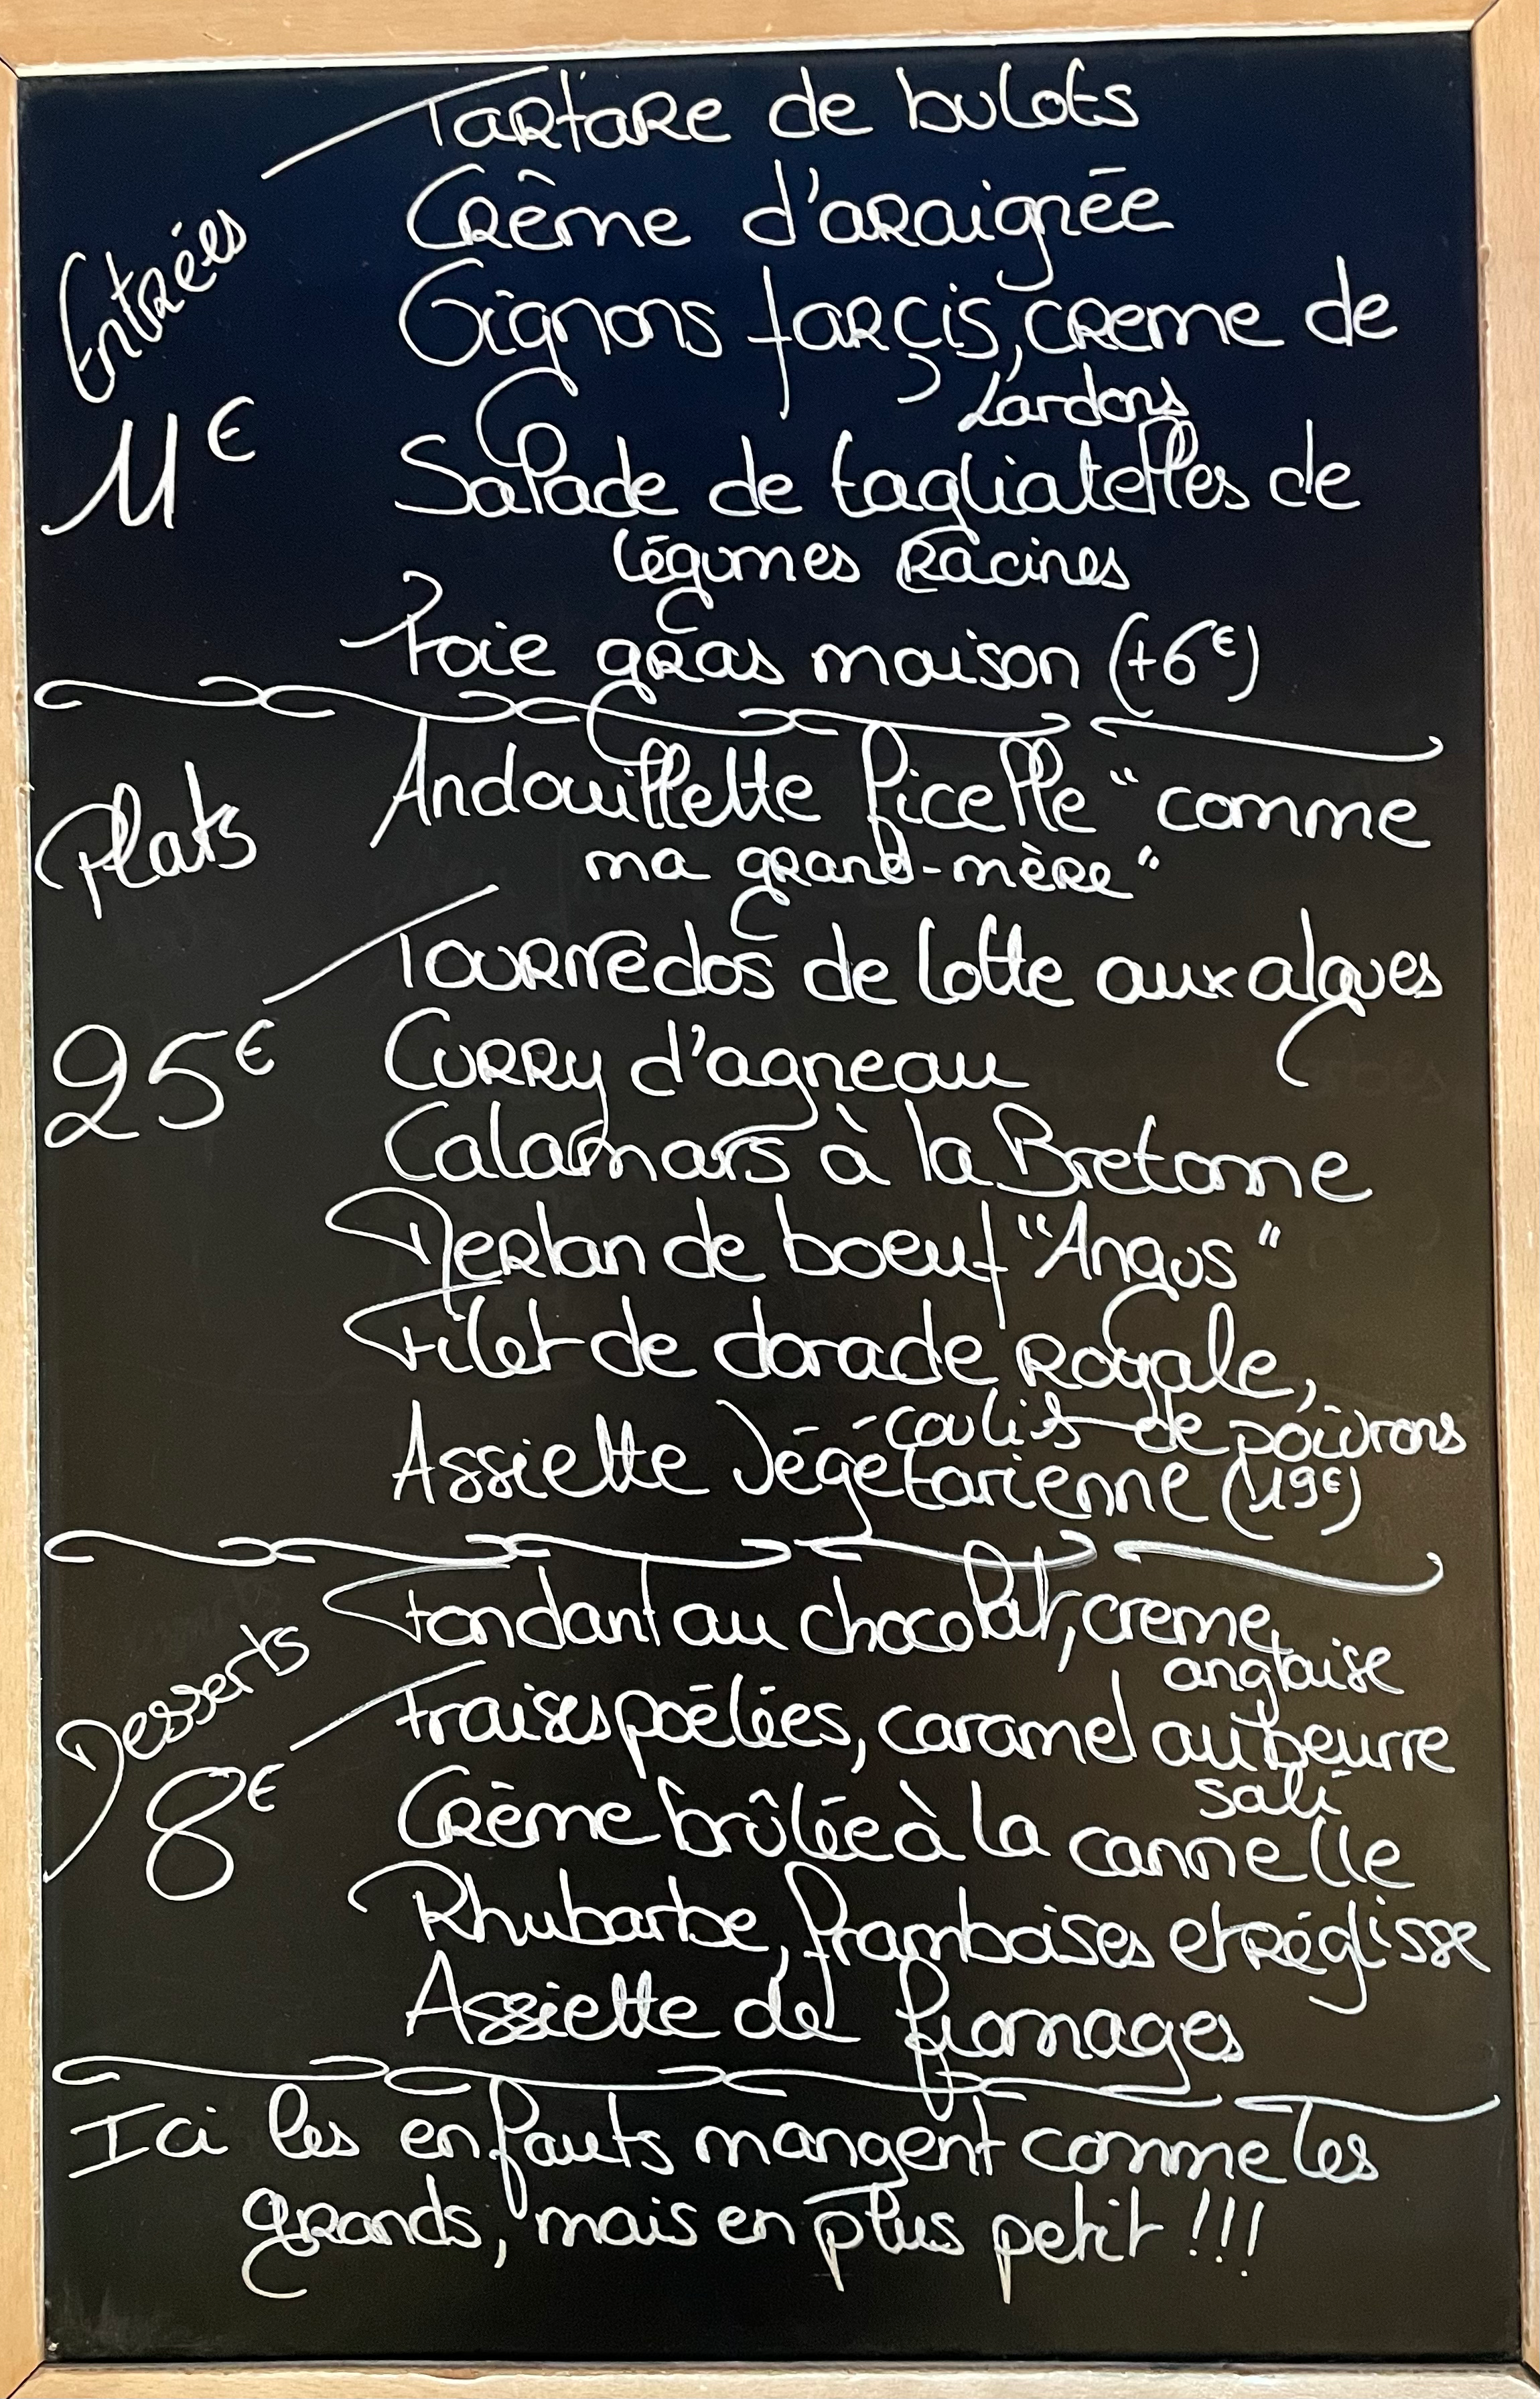 Entrées
11€
Tartare de bulots
Crème d'araignée
Oignons farçis, creme de
Lardons
Salade de tagliatelles de
légumes Racines
Foie gras maison (+6€)
Plats
25€
Andouillette ficelle "comme
ma grand-mère"
Tournedos de lotte aux algues
Curry d'agneau
Calamars à la Bretonne
Merlan de boeuf "Angus"
Filet de dorade Royale,
coulis de poivrons
Assiette Végétarienne (19€)
Desserts
8€
Fondant au chocolat, creme
anglaise
Fraises poêlées, caramel au beurre
salé
Crème brûlée à la cannelle
Rhubarbe, framboises et réglisse
Assiette de fromages
Ici les enfants mangent comme les
grands, mais en plus petit !!!